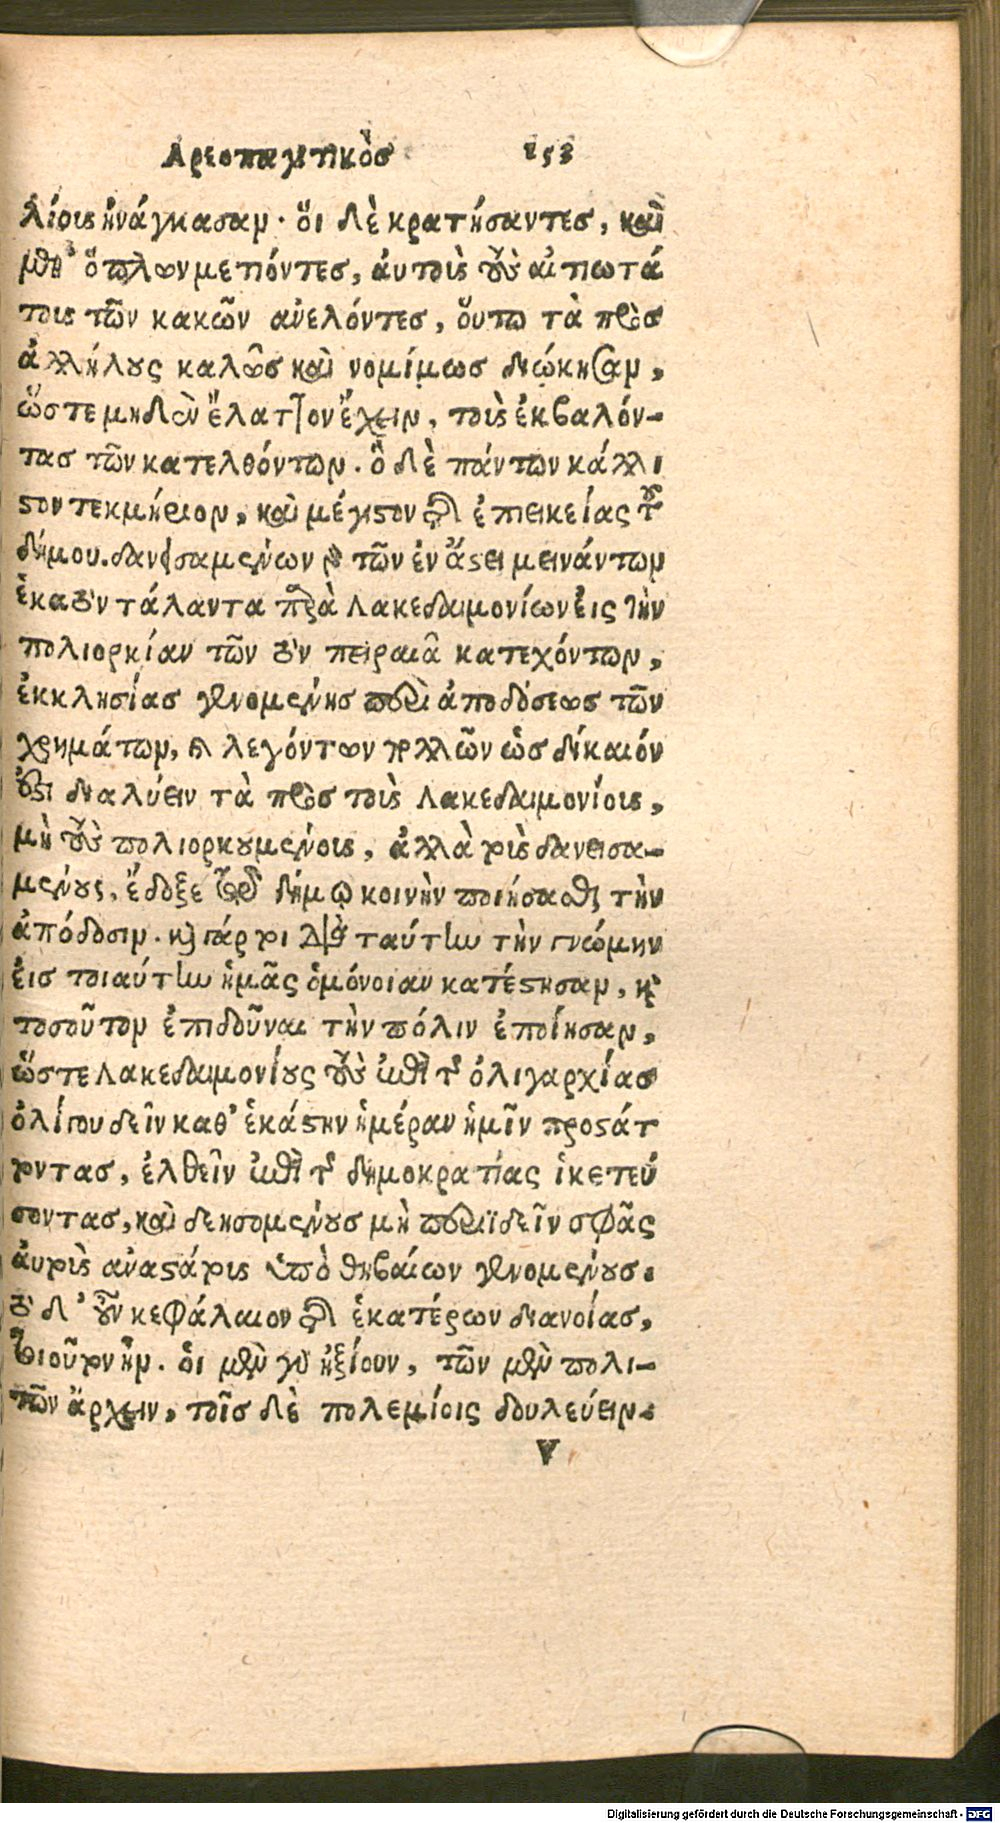 Αρεοπαγιτικὸσ 153
λίοις ἠνάγκασαν· ὅι δὲ κρατήσαντεσ, καὶ
μεθ’ ὅπλων μετιόντεσ, ἀυτοὺς τοὺς αἰτιωτά
τους τῶν κακῶν ἀνελόντεσ, ὅυτω τὰ πρὸσ
ἀλλήλους καλῶσ καὶ νομίμωσ διώκησαν,
ὥστε μηδὲν ἔλαττον ἔχειν, τοὺς ἐκβαλόν-
τασ τῶν κατελθόντων. ὃ δὲ πάντων κάλλι
στον τεκμήριον, καὶ μέγιστον τῆς ἐπιεικείας τοῦ
δήμου. δανεισαμένων γὰρ τῶν ἐν ἄστει μεινάντων
ἑκατὸν τάλαντα παρὰ Λακεδαιμονίων ἐις τὴν
πολιορκίαν τῶν τὸν πειραιᾶ κατεχόντων,
ἐκκλησίασ γενομένησ περὶ ἀποδόσεωσ τῶν
χρημάτων, καὶ λεγόντων πολλῶν ὡσ δίκαιόν
ἐστι διαλύειν τὰ πρὸσ τοὺς Λακεδαιμονίους,
μὴ τοὺς πολιορκουμένους, ἀλλὰ τοὺς δανεισα-
μένους, ἔδοξε τῷ δήμῳ κοινὴν ποιήσασθαι τὴν
ἀπόδοσιν. καὶ γάρ τοι διὰ ταύτην τὴν γνώμην
ἐισ τοιαύτην ἡμᾶς ὁμόνοιαν κατέστησαν, καὶ
τοσοῦτον ἐπιδοῦναι τὴν πόλιν ἐποίησαν,
ὥστε Λακεδαιμονίους τοὺς ἐπὶ τῆς ὀλιγαρχίασ
ὀλίγου δεῖν καθ’ ἑκάστην ἡμέραν ἡμῖν προστάτ
τοντασ, ἐλθεῖν ἐπὶ τῆς δημοκρατίας ἱκετεύ
σοντασ, καὶ δεησομένουσ μὴ περιϊδεῖν σφᾶς
ἀυτοὺς ἀναστάτους ὑπὸ θηβαίων γενομένουσ.
τὸ δ’ οὖν κεφάλαιον τῆς ἑκατέρων διανοίασ,
τοιοῦτον ἦν. ὁι μὲν γὰρ ἠξίουν, τῶν μὲν πολι-
τῶν ἄρχειν, τοῖσ δὲ πολεμίοις δουλεύειν.
V
Digitalisierung gefördert durch die Deutsche Forschungsgemeinschaft - DFG